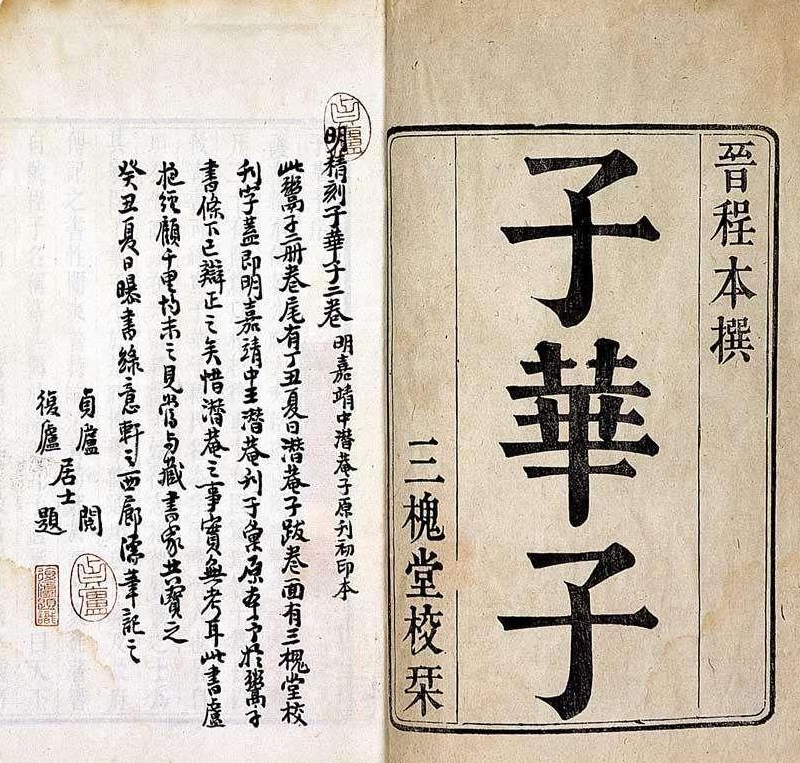 晉程本撰
子華子
三槐堂校栞
明精刻子華子二卷 明嘉靖中潛菴子原刊初印本
此鬻子二册卷尾有丁丑夏日潛菴子跋卷面有三槐堂校
刊字蓋即明嘉靖中王潛菴刊于彙原本予於鬻子
書條下已辯正之矣惜潛菴之事實無考耳此書盧
抱經顧千里均未之見當与藏書家共寶之
癸丑夏日曝書綠意軒之西廊漂筆記之
貞廬 閱
居士
復廬 題
貞廬